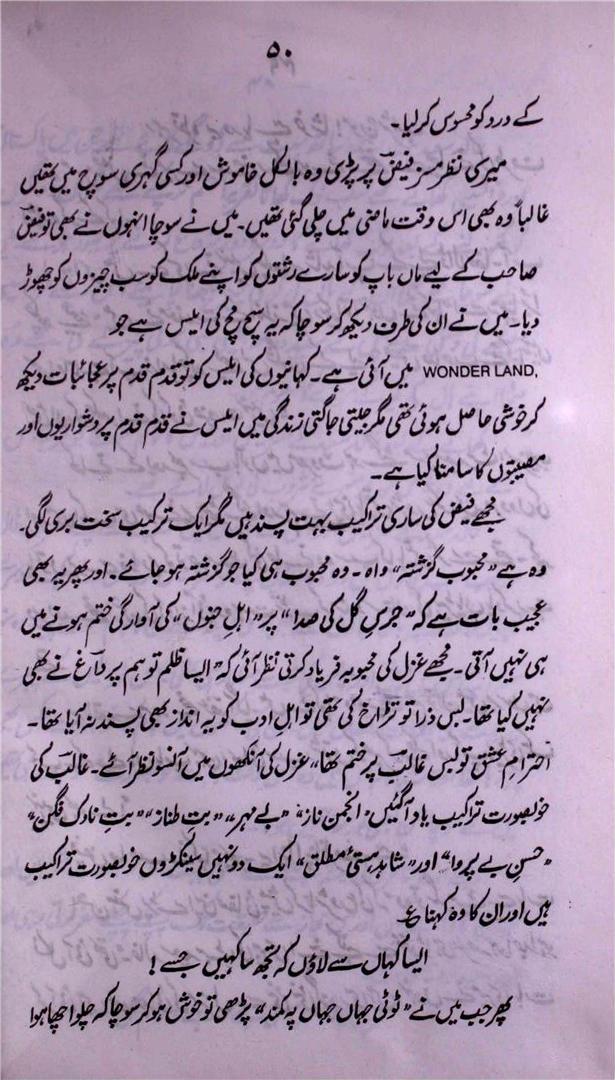 ۵۰
کے درد کو محسوس کر لیا۔
میری نظر مسز فیضؔ پر پڑی وہ بالکل خاموش اور کسی گہری سوچ میں تھیں
غالباً وہ بھی اس وقت ماضی میں چلی گئی تھیں۔ میں نے سوچا انہوں نے بھی تو فیضؔ
صاحب کے لیے ماں باپ کو سارے رشتوں کو اپنے ملک کو سب چیزوں کو چھوڑ
دیا۔ میں نے ان کی طرف دیکھ کر سوچا کہ یہ سچ مچ کی ایلس ہے جو
WONDER LAND, میں آئی ہے۔ کہانیوں کی ایلس کو تو قدم قدم پر عجائبات دیکھ
کر خوشی حاصل ہوئی تھی مگر جیتی جاگتی زندگی میں ایلس نے قدم قدم پر دشواریوں اور
مصیبتوں کا سامنا کیا ہے۔
مجھے فیض کی ساری تراکیب بہت پسند ہیں مگر ایک ترکیب سخت بری لگی۔
وہ ہے "محبوب گزشتہ" واہ۔ وہ محبوب ہی کیا جو گزشتہ ہو جائے۔ اور پھر یہ بھی
عجیب بات ہے کہ "جرسِ گل کی صدا" پر "اہلِ جنوں" کی آوارگی ختم ہونے میں
ہی نہیں آتی۔ مجھے غزل کی محبوبہ فریاد کرتی نظر آئی کہ "ایسا ظلم تو ہم پر داغؔ نے بھی
نہیں کیا تھا۔ بس ذرا تو تڑاخ کی تھی تو اہلِ ادب کو یہ انداز بھی پسند نہ آیا تھا۔
احترامِ عشق تو بس غالبؔ پر ختم تھا" غزل کی آنکھوں میں آنسو نظر آئے۔ غالبؔ کی
خوبصورت تراکیب یاد آ گئیں "انجمن ناز" "بے مہر" "بتِ طناز" "بتِ ناوک فگن"
"حسنِ بے پروا" اور "شاہد ہستیٔ مطلق" ایک دو نہیں سینکڑوں خوبصورت تراکیب
ہیں اور ان کا وہ کہنا ؏
ایسا کہاں سے لاؤں کہ تجھ سا کہیں جسے!
پھر جب میں نے "ٹوٹی جہاں جہاں پہ کمند" پڑھی تو خوش ہو کر سوچا کہ چلو اچھا ہوا